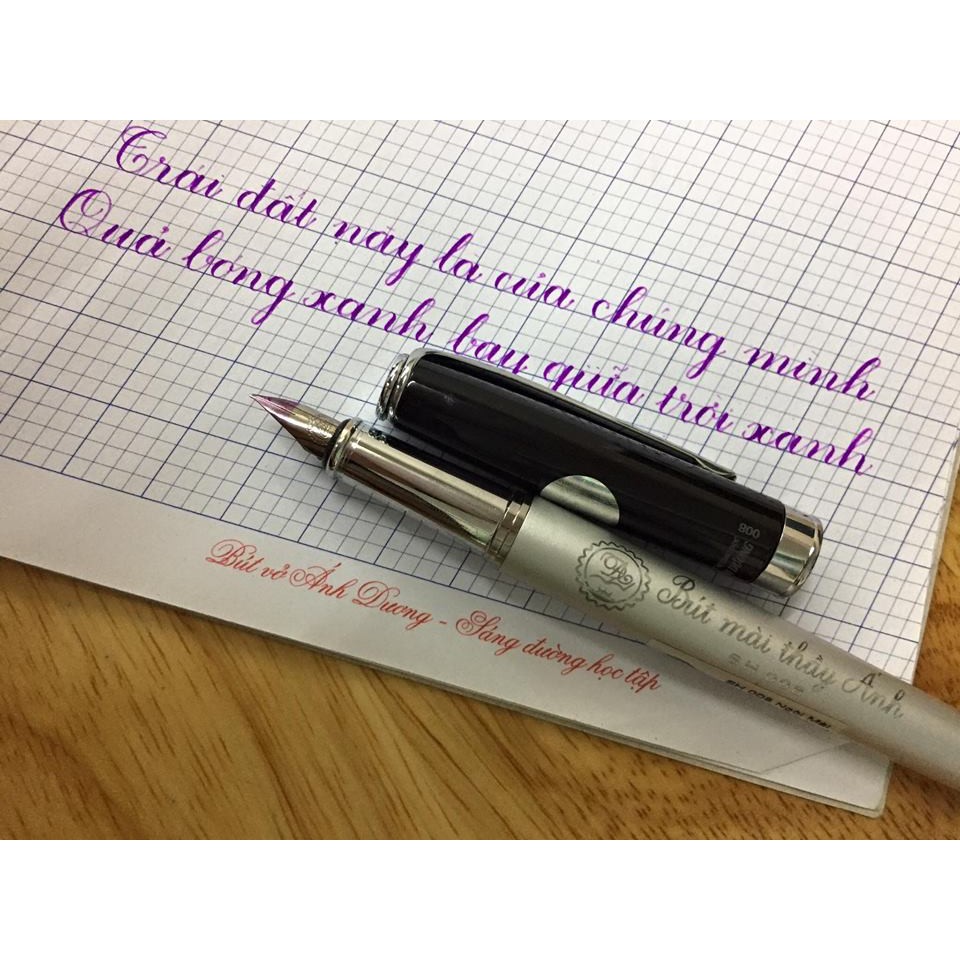 Trái đất này là của chúng mình
Quả bóng xanh bay giữa trời xanh
008
Bút mài thầy Ánh
SH 008
SH 008 Ngòi Mài
Bút vở Ánh Dương - Sáng đường học tập